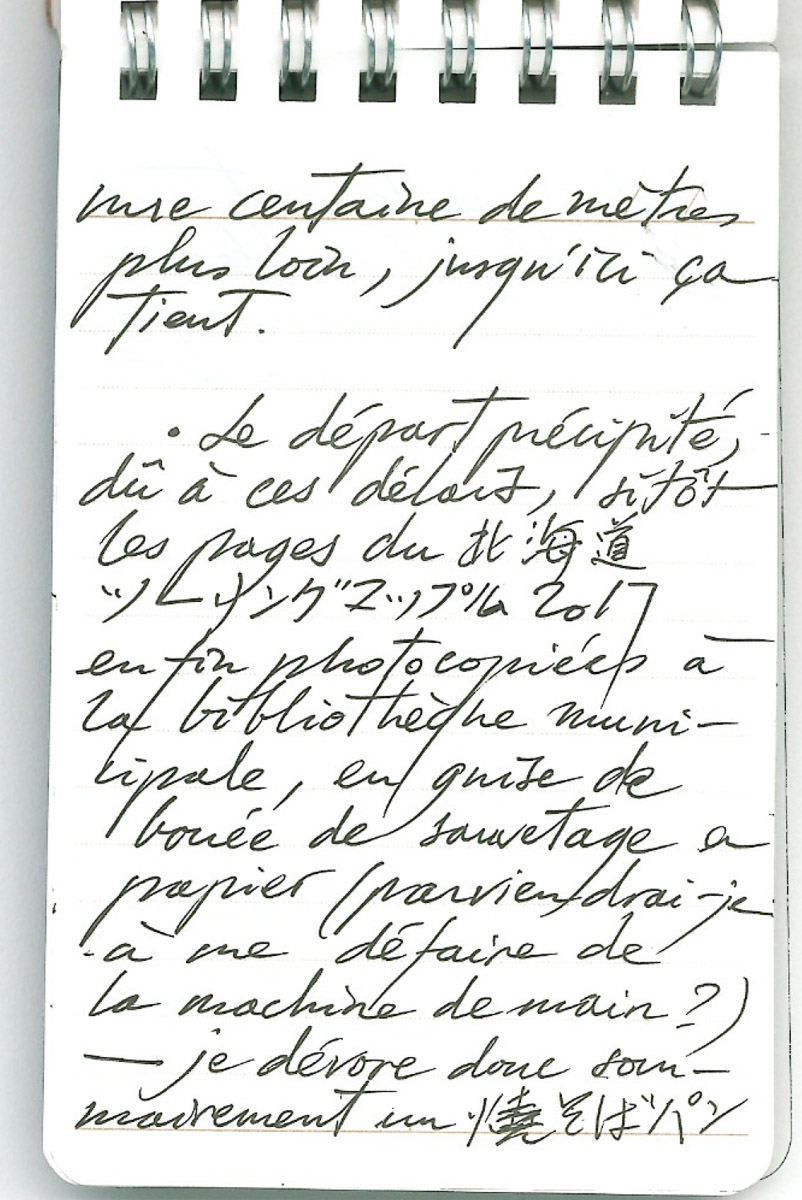 une centaine de mètres
plus loin, jusqu'ici ça
tient.
• Le départ précipité,
dû à ces délais, sitôt
les pages du 北海道
ツーリングマップル 2017
enfin photocopiées à
la bibliothèque muni-
cipale, en guise de
bouée de sauvetage en
papier (parviendrai-je
à me défaire de
la machine de main ?)
— je dévore donc som-
mairement un 焼そばパン